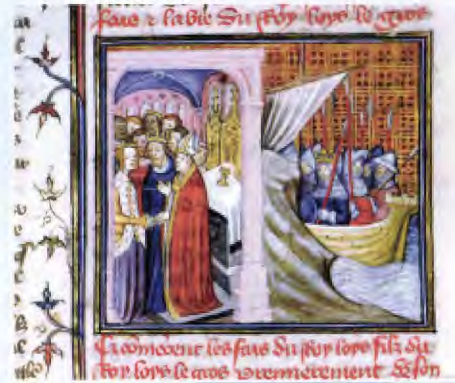 fais ⁊ la vie du Roy loys le gros
Cy cõmencent les fais du Roy loys filz du
Roy loys le gros premierement de son